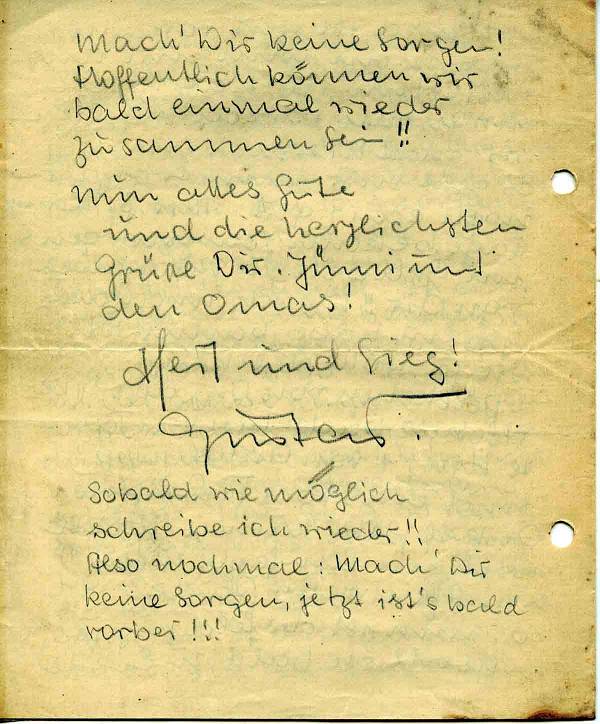 Mach' Dir keine Sorgen!
Hoffentlich können wir
bald einmal wieder
zusammen sein!!
Nun alles Gute
und die herzlichsten
Grüße Dir, Jünni und
den Omas!
Heil und Sieg!
Gustav.
Sobald wie möglich
schreibe ich wieder!!
Also nochmal: Mach' Dir
keine Sorgen, jetzt ist's bald
vorbei!!!